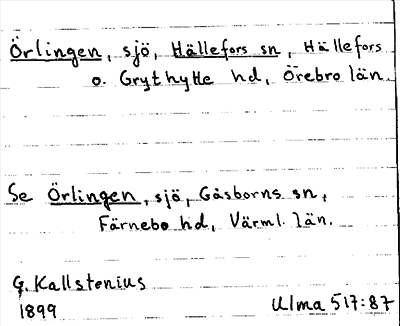 Örlingen, sjö, Hällefors sn, Hällefors
o. Grythytte hd, Örebro län.
Se Örlingen, sjö, Gåsborns sn,
Färnebo hd, Värml. län.
G. Kallstenius
1899
Ulma 517:87